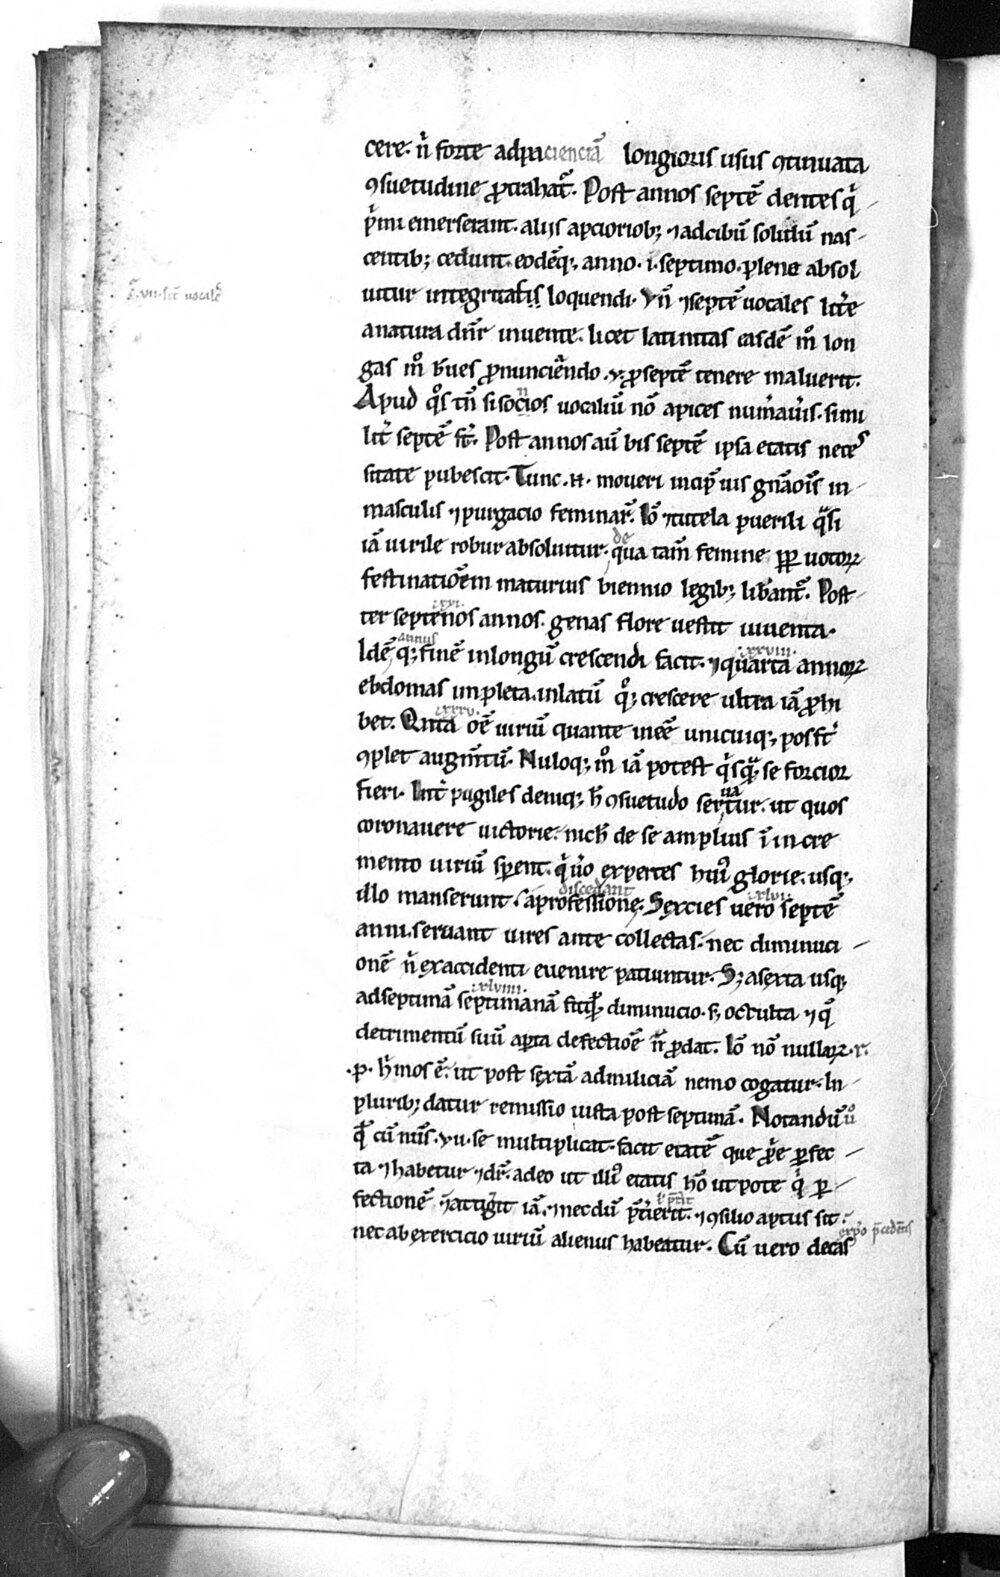 cere. ñ forte ad pacienciā longioris usus ꝯtinuata
ꝯsuetudine ꝓtrahat᷑. Post annos septē dentes q̇
ṗmi emerserant. aliis apciorib; ⁊ ad cibū solidū nas-
centib; cedunt. eodēq; anno .i. septimo. plene absol
uitur integritatis loquendi. Vñ ⁊ septē uocales litt̃e
.i. vii. sunt uocales
a natura dn̄r inuente. licet latinitas easdē m̊ lon
gas m̊ b̄ues pronunciando .v. ꝓ septē tenere maluerit.
Apud q̊s tn̄ si sonos uocaliū nō apices num̄aueris. simi
lit̃ septē st̄. Post annos aū bis septē ipsa etatis neces
sitate pubescit. Tunc .n. moueri incip̄ uis gn̄aciōis in
masculis ⁊ purgacio feminar̄. Iō ⁊ tutela puerili q̄si
iā uirile robur absoluitur. de qua tam̄ femine ꝓp̄ uotoꝝ
festinationem maturius biennio legib; lib̄ant᷑. Post
ter septenos .xxi. annos genas flore uestit iuuenta.
Idē annus q; finē in longū crescendi facit. ⁊ quarta .xxviii. annoꝝ
ebdomas impleta. in latū q̊q; crescere ultra iā ꝓhi
bet. Quinta .xxxv. oēm uiriū quante inēe unicuiq; posst̄
ꝯplet augm̄tū. Nulloq; m̊ iā potest q̇sq̄ se forcior
fieri. Int̃ pugiles deniq; h̄ ꝯsuetudo seruatur. ut quos
coronauere uictorie. nich̄ de se amplius ī incre
mento uiriū sp̄ent. q̇ ũo expertes hui᷒ glorie. usq;
illo manserunt. a professione discedant. Sexcies .xlii. uero septē
anni. seruant uires ante collectas. nec diminuci-
onē ñ ex accidenti euenire patiuntur. S; a sexta usq;
ad septimā septimanā .xlviiii. fit q̄dē diminucio. s; occulta ⁊ q̄
detrimentū suū aꝑta defectiōe ñ ꝓdat. Iō nō nullaꝝ .r.
.p. h̄ mos ē. ut post sextā ad miliciā nemo cogatur. In
plurib; datur remissio iusta post septimā. Notandū ů
q̄ cū nūs .vii. se multiplicat. facit etatē que ꝓp̄e ꝑfec-
ta ⁊ habetur ⁊ dr̄. adeo ut illi᷒ etatis hō utpote q̇ ꝑ-
fectionē ⁊ attigit iā. ⁊ necdū p̄t̄ierit. ⁊ ꝯsilio aptus sit.
nec ab exercicio uiriū alienus habeatur. Cū uero decas